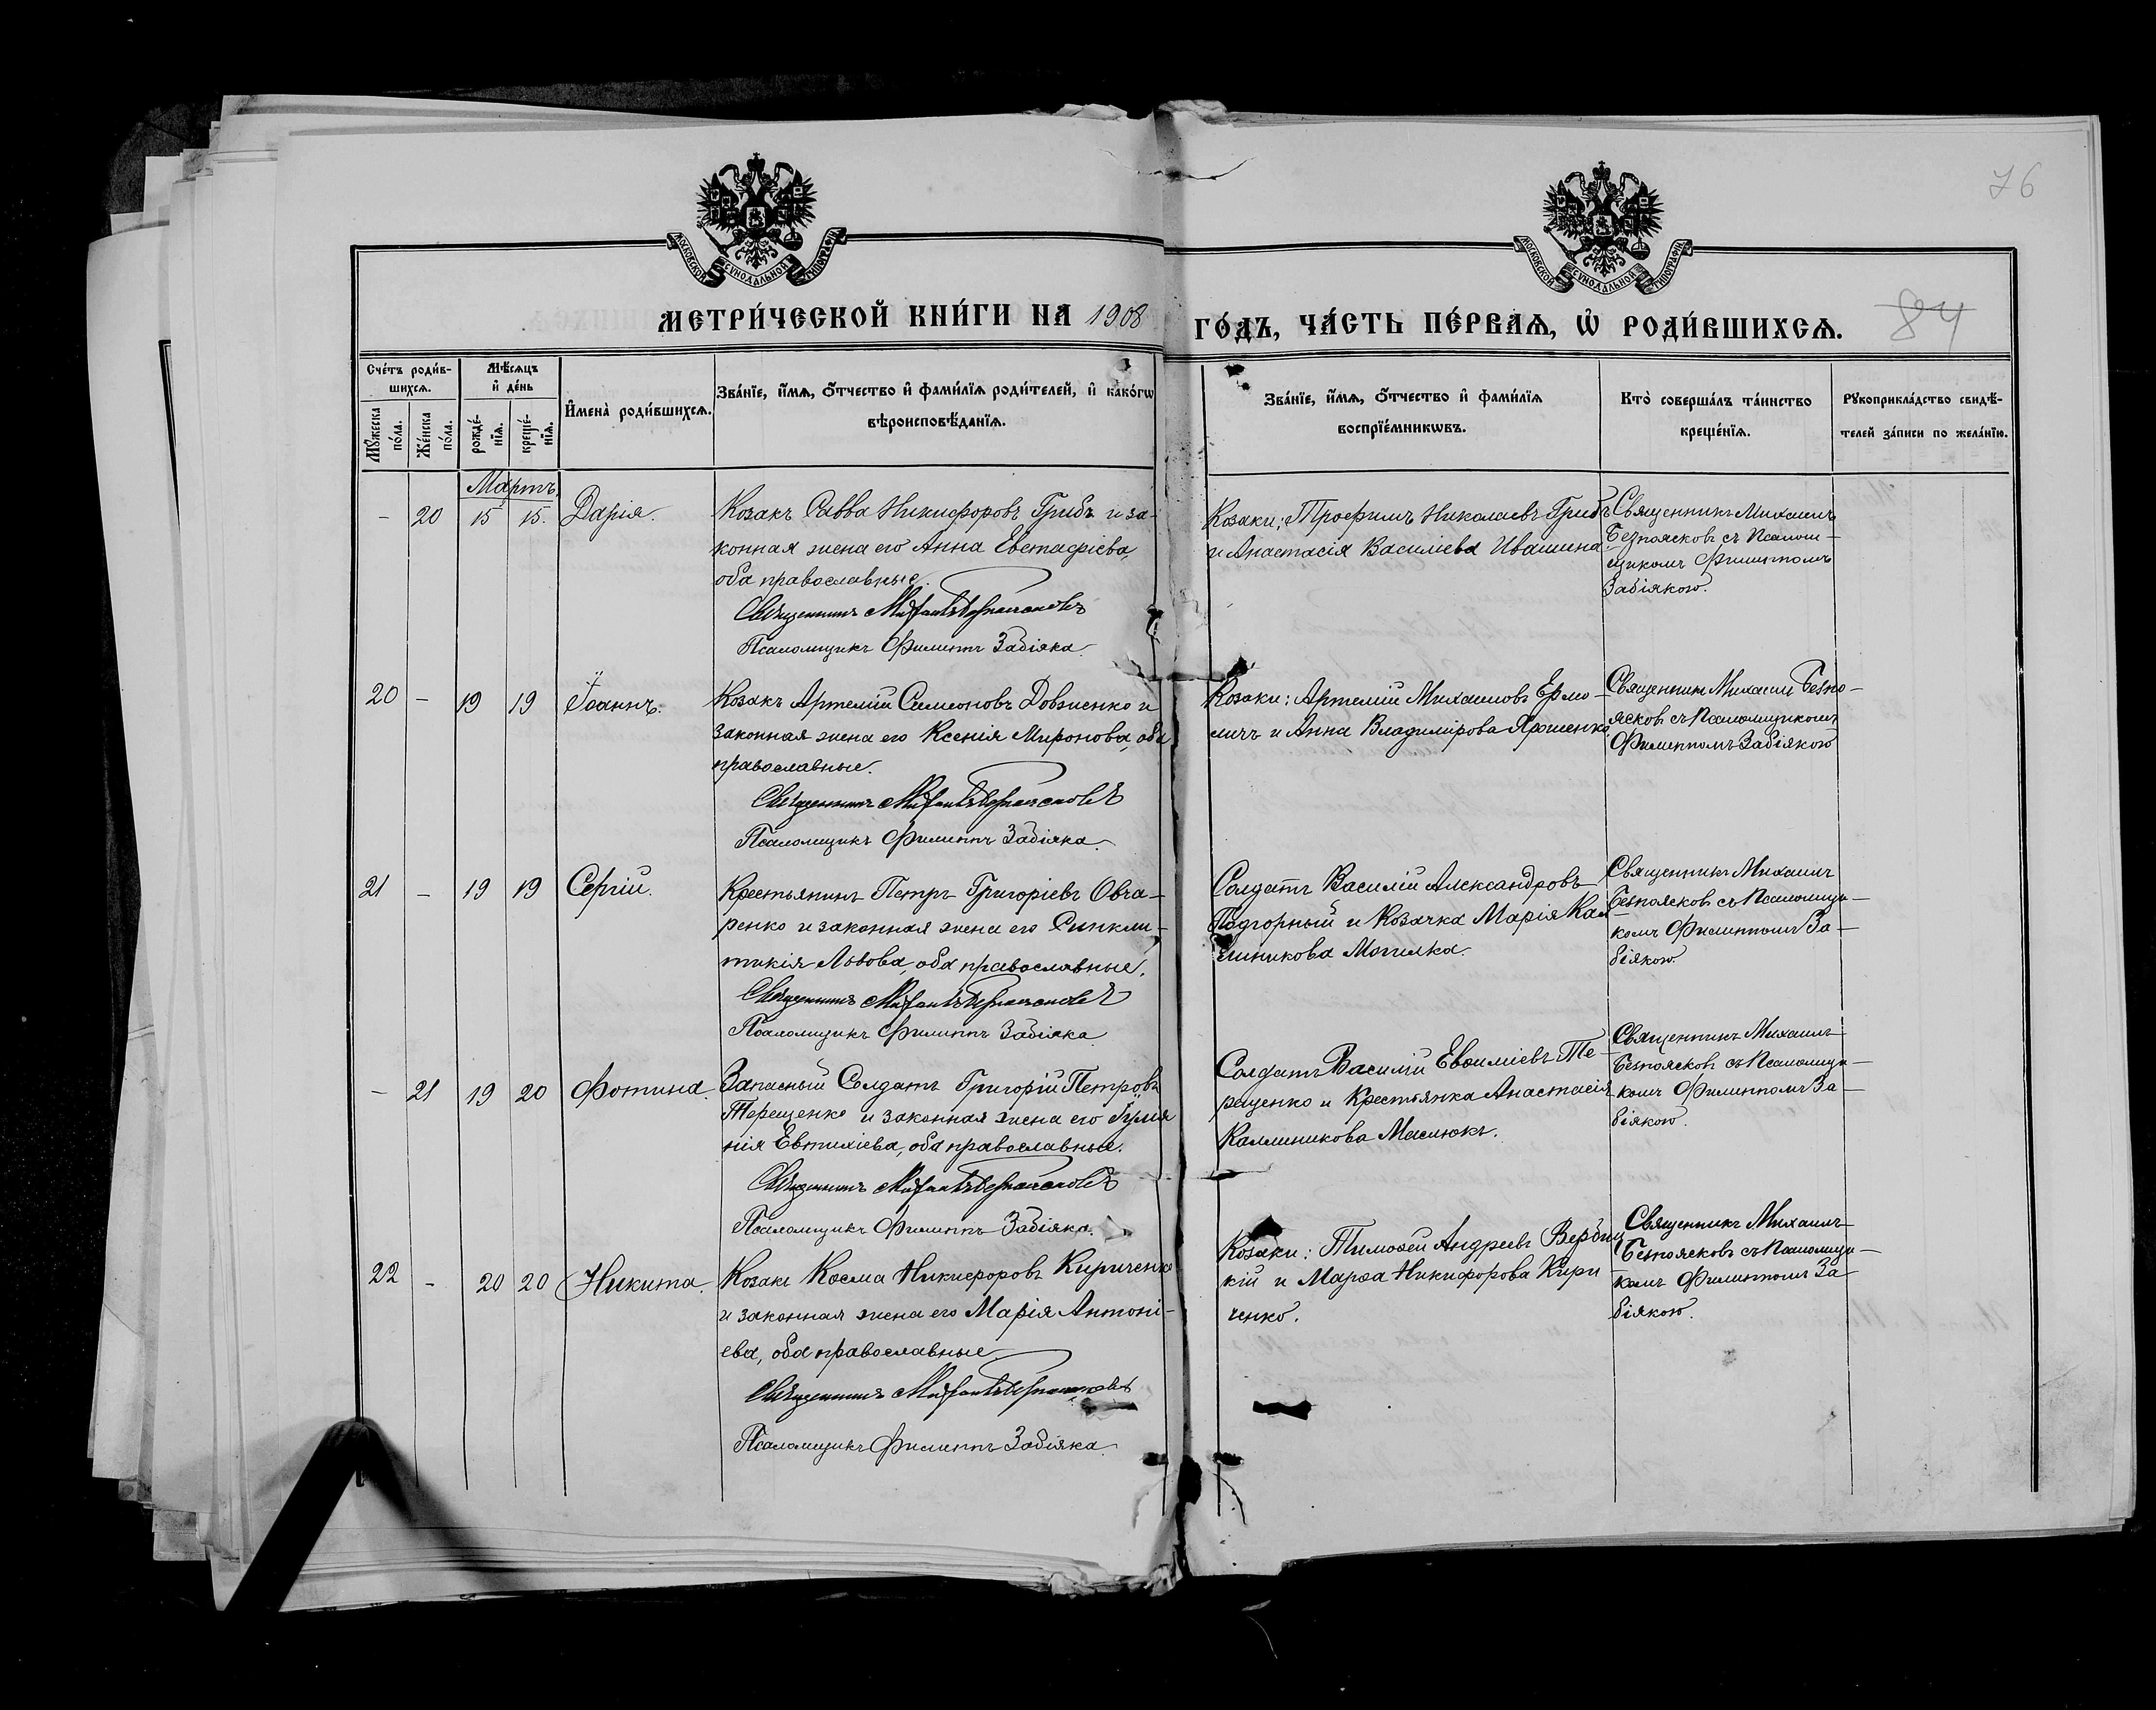 76
МОСКОВСКОЙ СѴНОДАЛЬНОЙ ТИПОГРАФІИ
МОСКОВСКОЙ СѴНОДАЛЬНОЙ ТИПОГРАФІИ
МЕТРИ́ЧЕСКОЙ КНИ́ГИ НА 1908 ГО́ДЪ, ЧА́СТЬ ПЕ́РВАѦ, Ѡ҆ РОДИ́ВШИХСѦ.
84
Сче́тъ роди́в-
шихсѧ.
Мѣ́сѧцъ
и҆ де́нь
Мꙋ́жеска
по́ла.
Же́нска
по́ла.
рожде́-
нїѧ.
креще́-
нїѧ.
И҆мена̀ роди́вшихсѧ.
Зва́нїе, и҆́мѧ, ѻ҆́тчество и҆ фами́лїѧ роди́телей, и҆ како́гѡ
вѣроисповѣ́данїѧ.
Зва́нїе, и҆́мѧ, ѻ҆́тчество и҆ фами́лїѧ
воспрїе́мникѡвъ.
Кто̀ соверша́лъ та́инство
креще́нїѧ.
Рꙋкоприкла́дство свидѣ́-
телей за́писи по жела́нїю.
Мартъ.
- 20 15 15. Дарія.
Козакъ Савва Никифоровъ Грибъ и за-
конная жена его Анна Евстафіева,
оба православные.
Священникъ Михаилъ Безпоясковъ
Псаломщикъ Филиппъ Забіяка.
Козаки: Трофимъ Николаевъ Грибъ
и Анастасія Василіева Ивашина.
Священникъ Михаилъ
Безпоясковъ съ Псалом-
щикомъ Филиппомъ
Забіякою.
20 - 19 19 Іоаннъ.
Козакъ Артемій Симеоновъ Довженко и
законная жена его Ксенія Миронова, оба
православные.
Священникъ Михаилъ Безпоясковъ
Псаломщикъ Филиппъ Забіяка.
Козаки: Артемій Михаиловъ Ермо-
личъ и Анна Владимірова Ярошенко.
Священникъ Михаилъ Безпо-
ясковъ съ Псаломщикомъ
Филиппомъ Забіякою
21 - 19 19 Сергій.
Крестьянинъ Петръ Григоріевъ Овча-
ренко и законная жена его Синкли-
тикія Львова, оба православные.
Священникъ Михаилъ Безпоясковъ
Псаломщикъ Филиппъ Забіяка
Солдатъ Василій Александровъ
Подгорный и Козачка Марія Кал-
линикова Могилка.
Священникъ Михаилъ
Безпоясковъ съ Псаломщи-
комъ Филиппомъ За-
біякою.
- 21 19 20 Фотина.
Запасный Солдатъ Григорій Петровъ
Терещенко и законная жена его Іулiа
нія Евтихіева, оба православные.
Священникъ Михаилъ Безпоясковъ
Псаломщикъ Филиппъ Забіяка.
Солдатъ Василій Евѳиміевъ Те-
рещенко и Крестьянка Анастасія
Каллиникова Маслюкъ.
Священникъ Михаилъ
Безпоясковъ съ Псаломщи-
комъ Филиппомъ За-
біякою.
22 - 20 20 Никита.
Козакъ Косма Никифоровъ Кириченко
и законная жена его Марія Антоні-
ева, оба православные
Священникъ Михаилъ Безпоясковъ
Псаломщикъ Филиппъ Забіяка.
Козаки: Тимоѳей Андреевъ Вербиц
кій и Марѳа Никифорова Кири-
ченко.
Священникъ Михаилъ
Безпоясковъ съ Псаломщи-
комъ Филиппомъ За-
біякою.